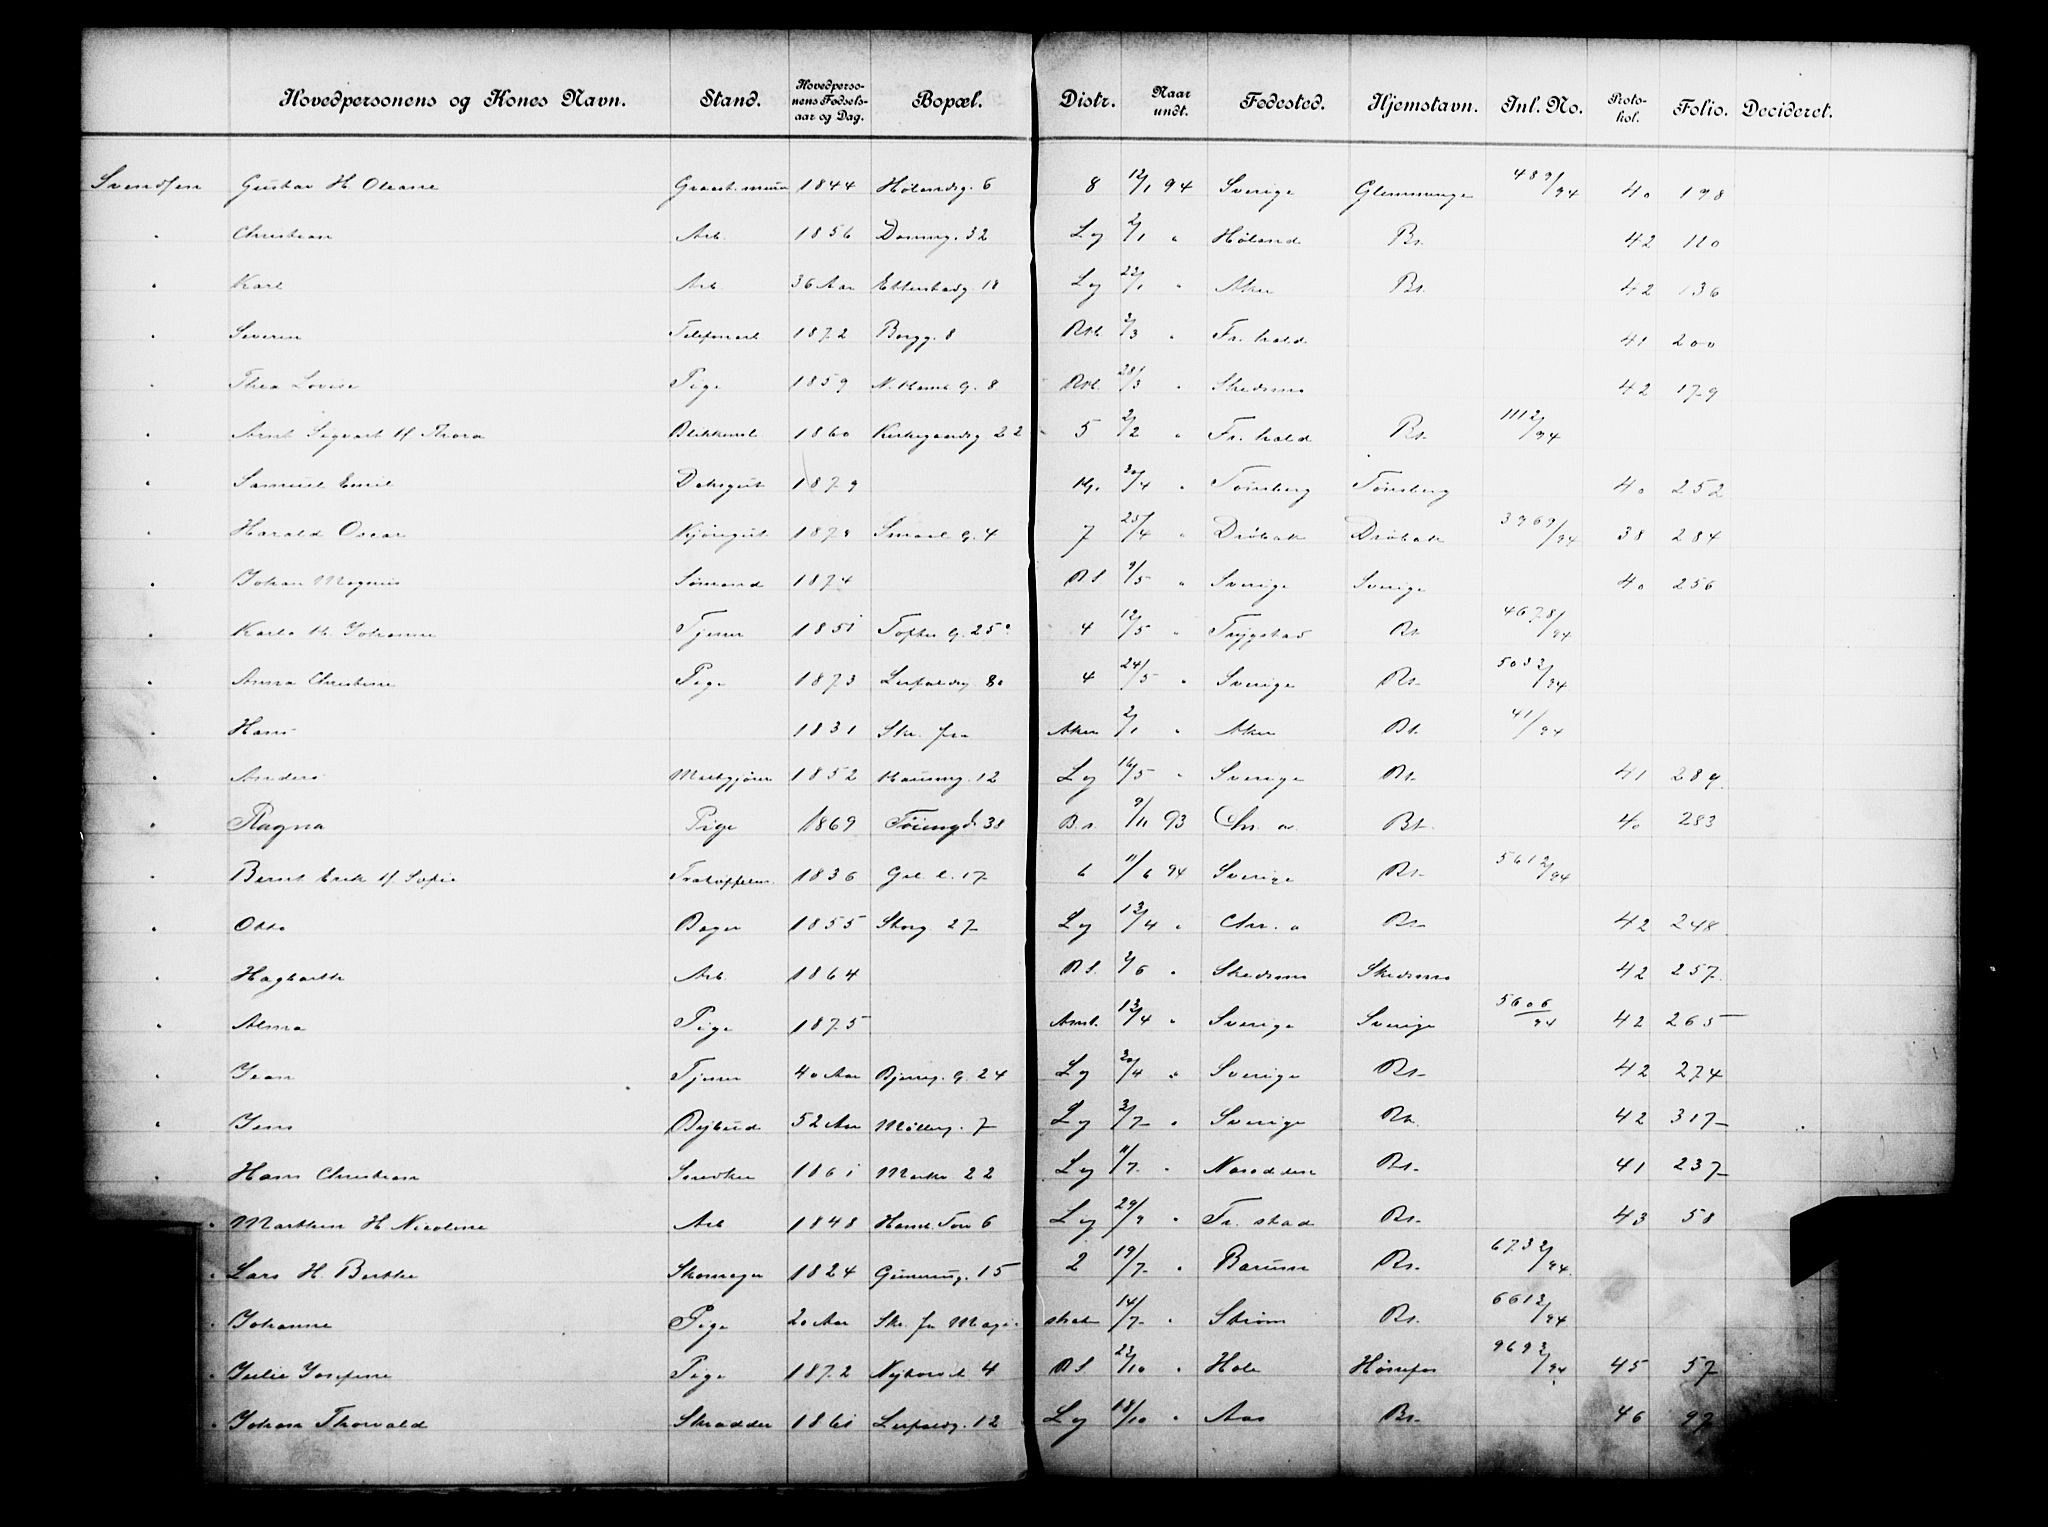 Hovedpersonens og Kones Navn. Stand. Hovedpersonens Fødselsaar og Dag. Bopæl. Distr. Naar undt. Fødested. Hjemstavn. Inl. No. Protokol. Folio. Decideret.
Svendsen Gustav H Oleane 1844 Hølandsg. 6 8 12/1 94 Sverige Glemminge 489/94 40 198
" Christian Arb. 1856 32 Lg 2/1 " Høland Bt. 42 110
" Karl Arb 36 Aar Etterstadg 18 Lg 22/1 " Aker Bt. 42 136
" Severin Telefonarb 1872 Borgg. 8 2/3 " Fr. hald 41 200
" Thea Lovise Pige 1859 8 28/3 " Skedsmo 42 179
" Arnt Sigvart H Thora Blikkensl. 1860 Kirkegaardsg 22 5 2/2 " Fr. hald Bt. 1112/94
" Samuel Emil Døvsgut 1879 20/4 " Tønsberg Tønsberg 40 252
" Harald Oscar Kjøregut 1879 Smaal. G. 4 7 25/4 " Drøbak Drøbak 3969/94 38 284
" Johan Magnus Sømand 1874 9/5 " Sverige Sverige 40 256
" Karl H. Johanne Tjener 1851 Toftes G. 25 4 12/5 " Trygstad Bt 4678/94
" Anna Christine Pige 1873 Leirfaldsg 80 4 24/5 " Sverige Bt. 5032/94
" Hans 1831 Skr. fra Aker 2/1 " Aker Bt. 41/94
" Anders 1852 Hausmg. 12 Lg 16/5 " Sverige Bt. 41 289
" Ragna Pige 1869 Tøiengd. 38 B.s. 9/11 93 Chr. a. Bt. 40 283
" Bernt Erik H Sofie 1836 17 6 11/6 94 Sverige Bt. 5612/94
" Otto Bager 1855 Storg 27 Lg 12/4 " Chr. a Bt. 42 248
" Hagbarth Arb. 1864 2/6 " Skedsmo Skedsmo 42 257
" Alma Pige 1875 13/4 " Sverige Sverige 5606/94 42 265
" Jean Tjener 40 Aar 24 Lg 30/4 " Sverige Bt. 42 274
" Jens Bejbud 52 Aar Møllerg. 7 Lg 3/7 " Sverige Bt. 42 317
" Hans Christian Snedker 1861 Markv 22 Lg 11/7 " Nesodden Bt. 41 237
" Marthin H Nicoline Arb 1848 6 Lg 29/9 " Fr. stad Bt. 43 58
" Lars H. Berthe Skomager 1824 Grünerg. 15 2 19/7 " Bærum Bt. 6732/94
" Johanne Pige 20 Aar Skr. fra Magi. 14/7 " Strøm Bt. 6612/94
" Julie Josefine Pige 1872 4 22/10 " Hole Hønefos 9692/94 45 57
" Johan Thorvald Skrædder 1861 Leirfaldsg. 12 Lg 18/10 " Aas Bt. 46 97